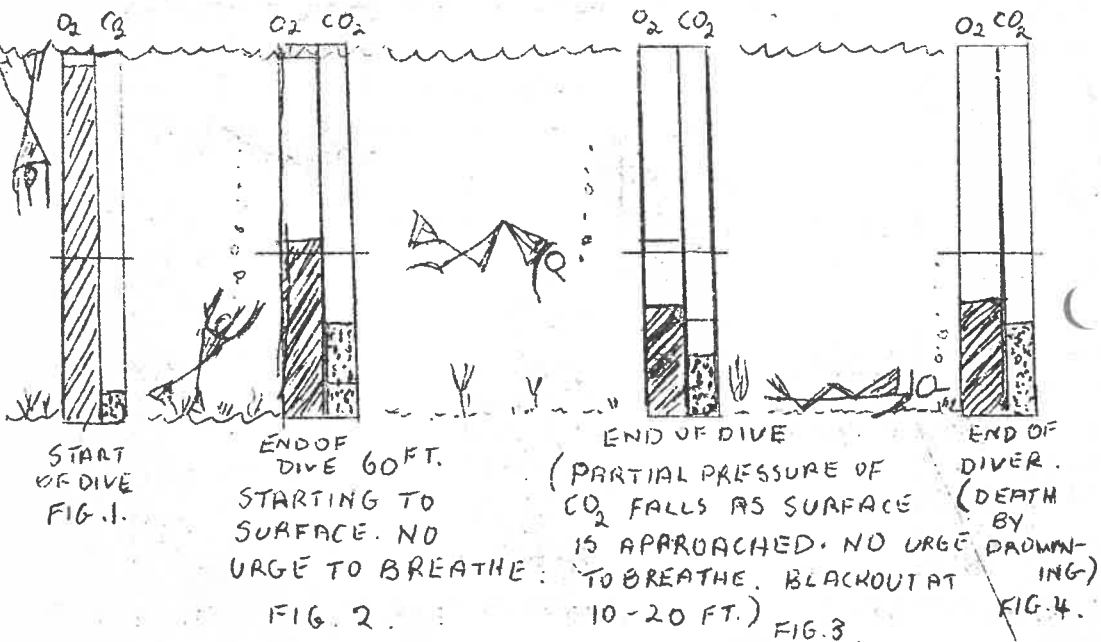 O2 CO2
O2 CO2
O2 CO2
O2 CO2
START
OF DIVE
FIG.1.
END OF
DIVE 60 FT.
STARTING TO
SURFACE. NO
URGE TO BREATHE.
FIG. 2.
END OF DIVE
(PARTIAL PRESSURE OF
CO2 FALLS AS SURFACE
IS APPROACHED. NO URGE
TO BREATHE. BLACKOUT AT
10-20 FT.)
FIG.3
END OF
DIVER.
(DEATH
BY
DROWN-
ING)
FIG.4.